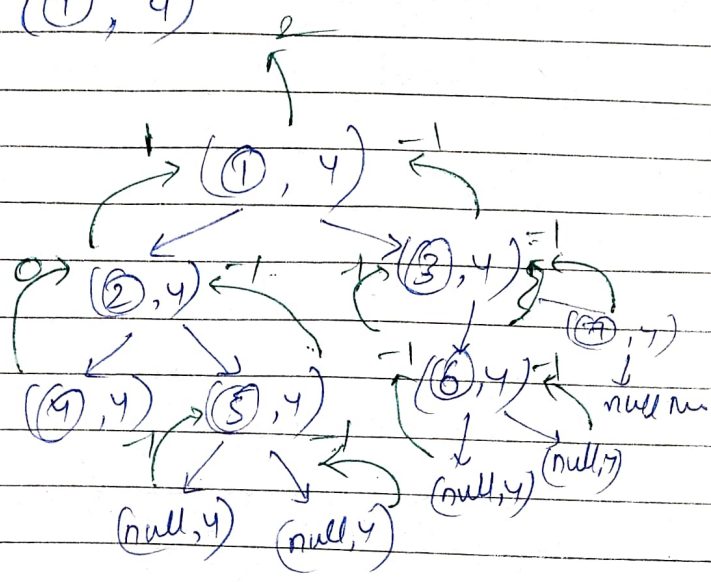 (1, 4)
2
1 (1, 4) -1
0 (2, 4) -1 -1 (3, 4) -1
(7, 4)
(4, 4) (5, 4) -1 (6, 4) -1
null
-1 -1
(null, 4) (null, 4) (null, 4) (null, 4)